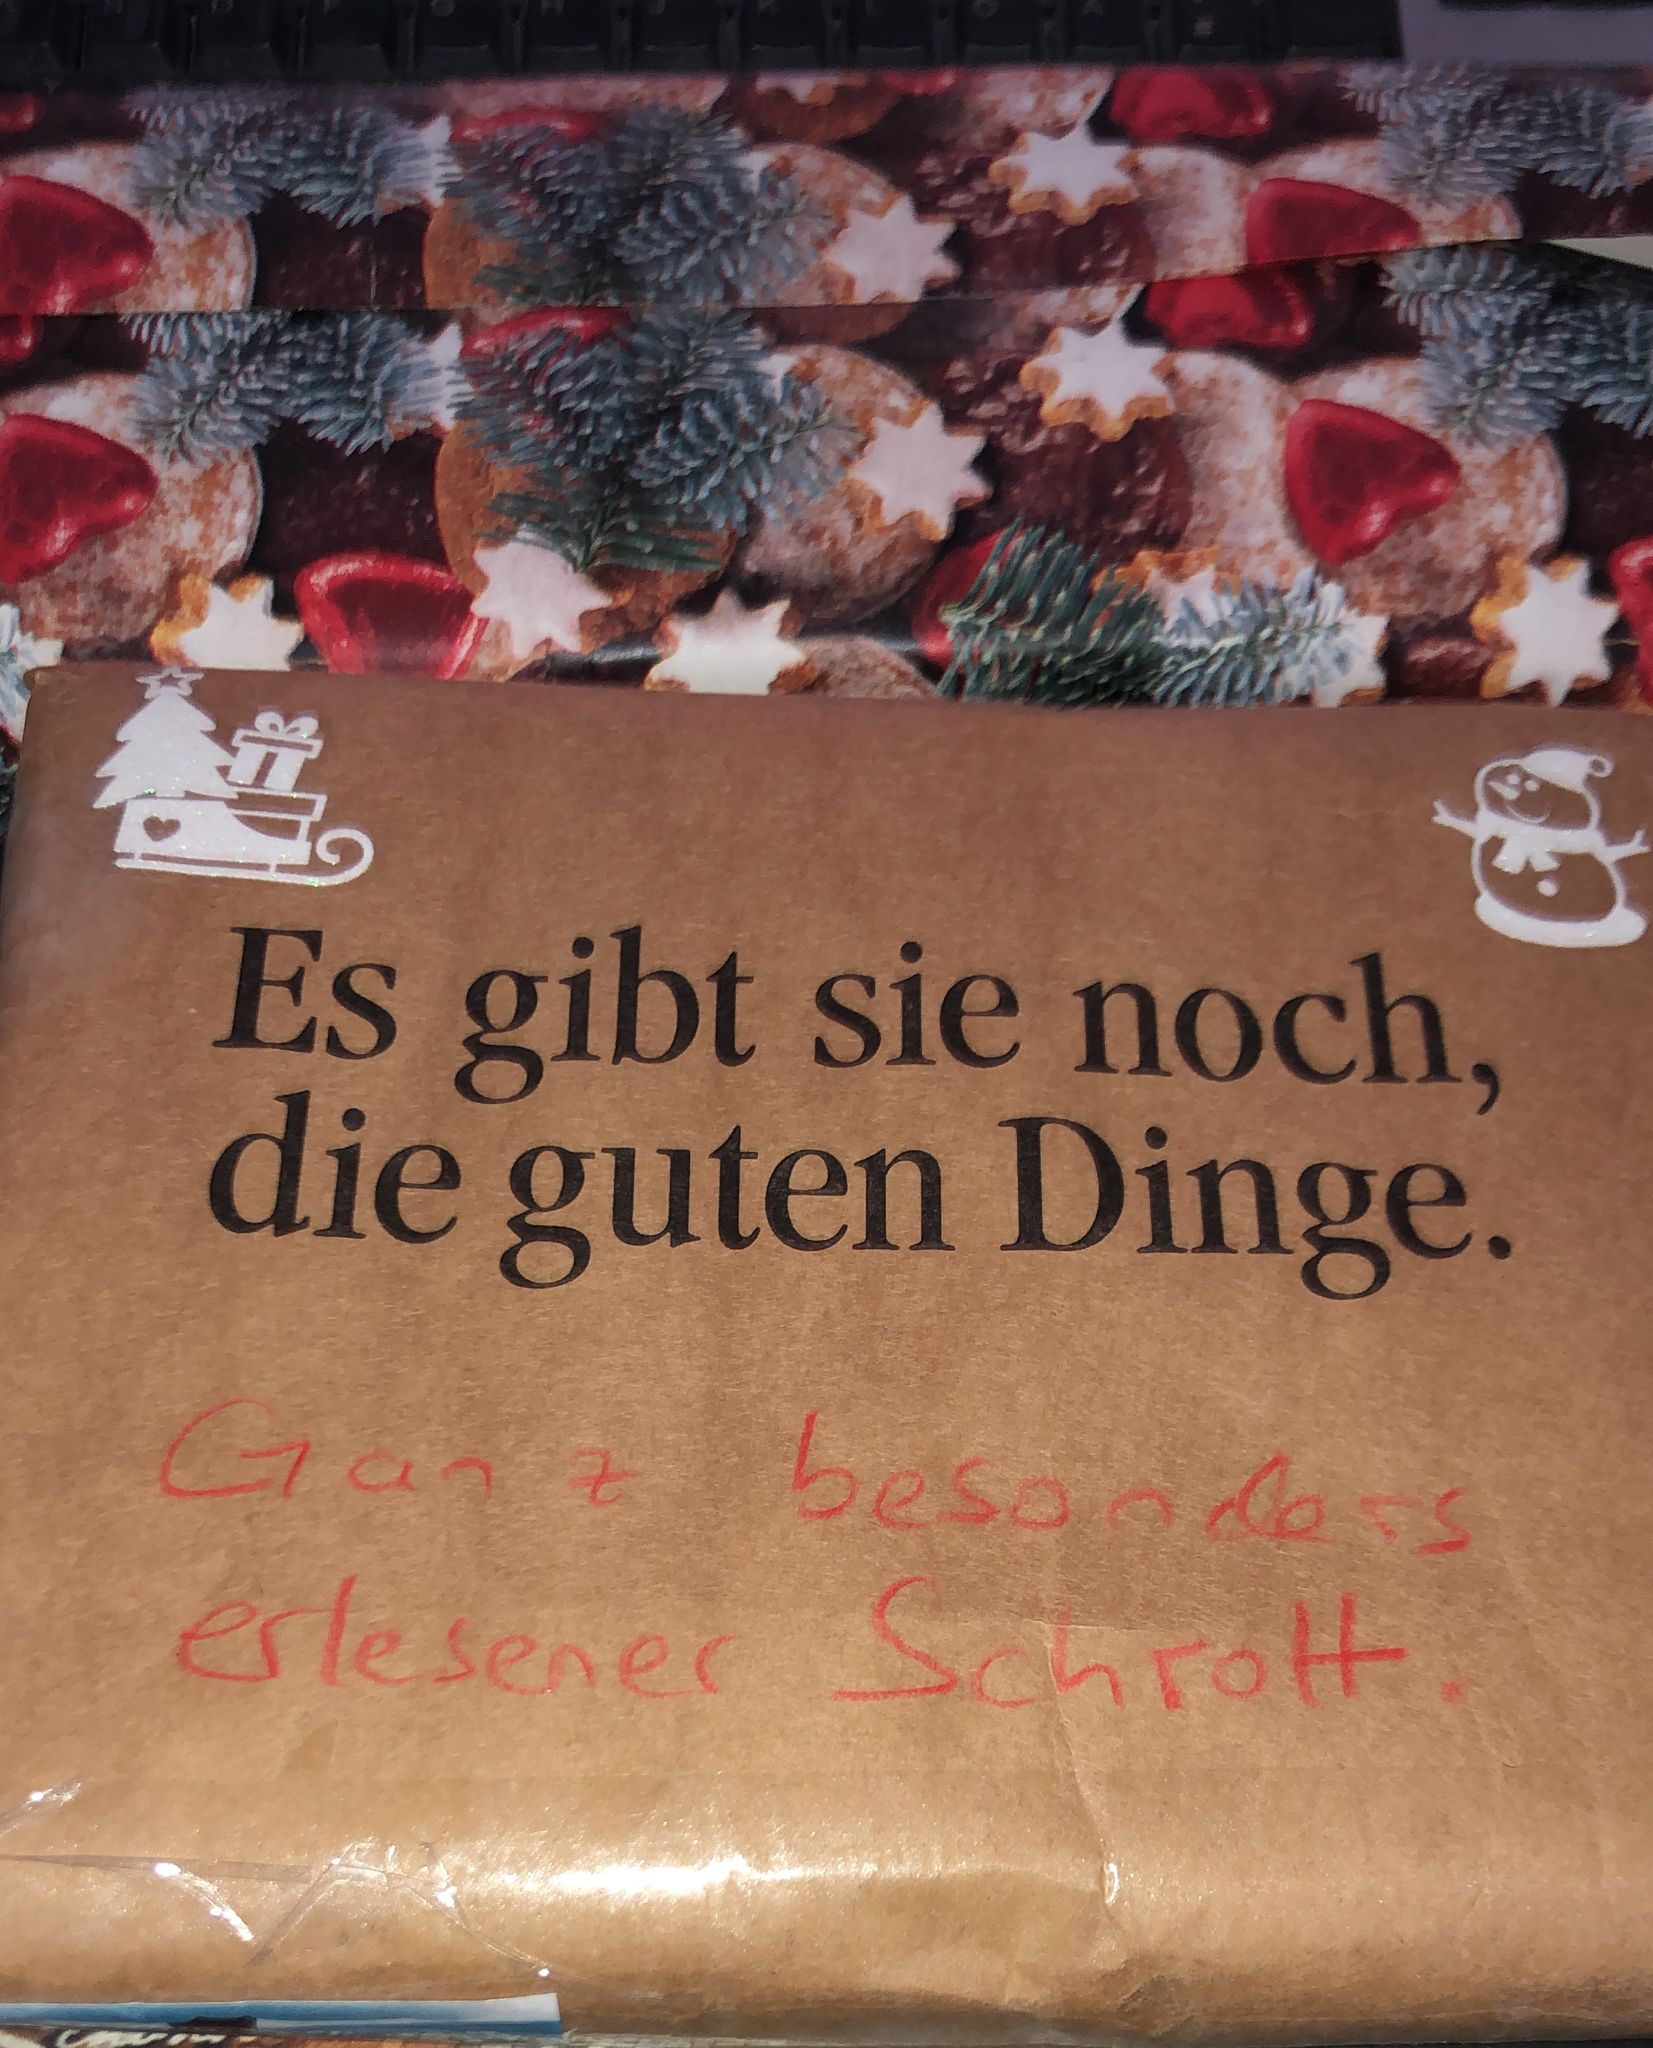 Es gibt sie noch,
die guten Dinge.
Ganz besonders
erlesener Schrott.